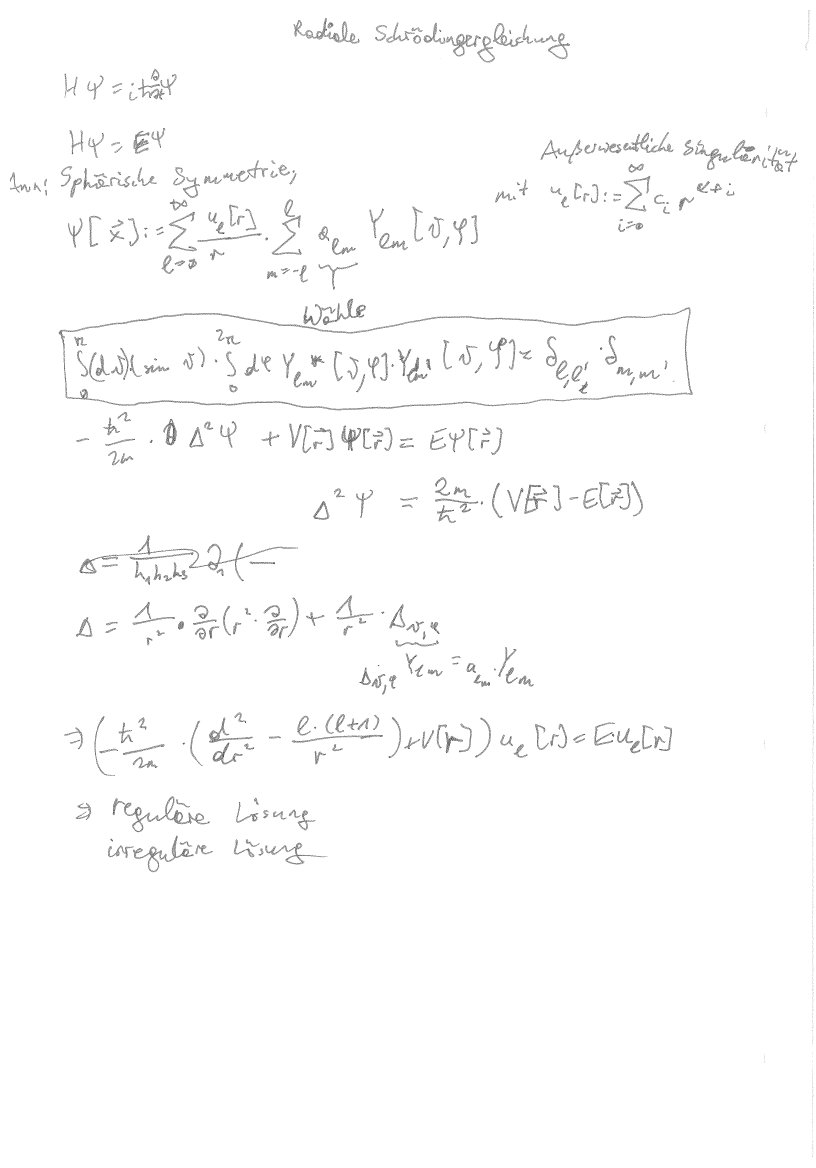 Radiale Schrödingergleichung
HΨ = iħ ∂/∂t Ψ
HΨ = EΨ
Ann: Sphärische Symmetrie,
Ψ[x⃗] := ∑_{l=0}^{∞} u_l[r]/r · ∑_{m=-l}^{l} a_{lm} Y_{lm}[ϑ,φ]
Außerwesentliche Singularität
mit u_l[r] := ∑_{i=0}^{∞} c_i r^{α+i}
Wähle
∫_0^π (dϑ)(sin ϑ) · ∫_0^{2π} dφ Y_{lm}^*[ϑ,φ] · Y_{l'm'}[ϑ,φ] = δ_{l,l'} · δ_{m,m'}
-ħ²/2m · Δ²Ψ + V[r⃗]Ψ[r⃗] = EΨ[r⃗]
Δ²Ψ = 2m/ħ² · (V[r⃗] - E[r⃗])
Δ = 1/(h₁h₂h₃) ∂₁(
Δ = 1/r² · ∂/∂r (r² · ∂/∂r) + 1/r² · Δ_{ϑ,φ}
Δ_{ϑ,φ} Y_{lm} = a_{lm} · Y_{lm}
⇒ (-ħ²/2m · (d²/dr² - l·(l+1)/r²) + V[r]) u_l[r] = E u_l[r]
⇒ reguläre Lösung
irreguläre Lösung